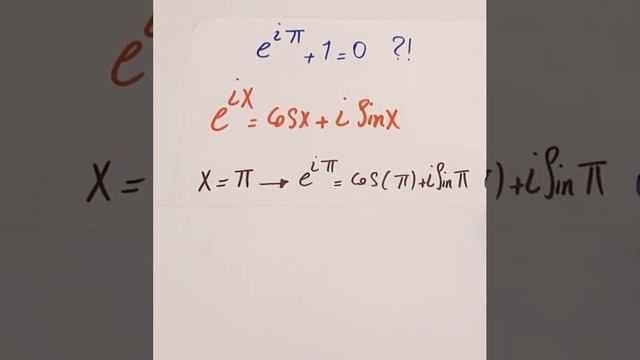 e^{iπ} + 1 = 0 ?!
e^{ix} = cosx + i sinx
x = π → e^{iπ} = cos(π) + i sin π